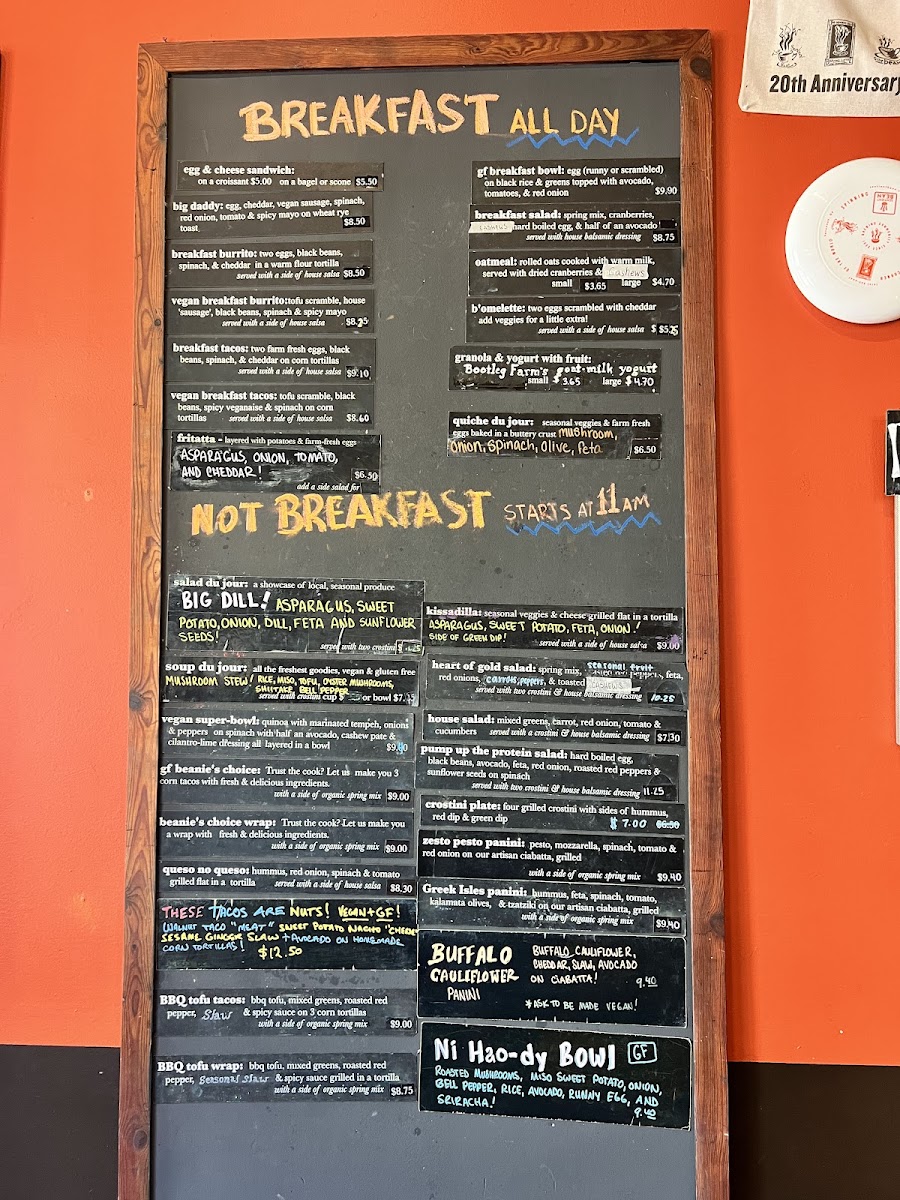 20th Anniversary
BREAKFAST ALL DAY
egg & cheese sandwich:
on a croissant $5.00 on a bagel or scone $5.50
big daddy: egg, cheddar, vegan sausage, spinach,
red onion, tomato & spicy mayo on wheat rye
toast $8.50
breakfast burrito: two eggs, black beans,
spinach, & cheddar in a warm flour tortilla
served with a side of house salsa $8.50
vegan breakfast burrito: tofu scramble, house
'sausage', black beans, spinach & spicy mayo
served with a side of house salsa
breakfast tacos: two farm fresh eggs, black
beans, spinach, & cheddar on corn tortillas
served with a side of house salsa $9.10
vegan breakfast tacos: tofu scramble, black
beans, spicy veganaise & spinach on corn
tortillas served with a side of house salsa $8.60
fritatta - layered with potatoes & farm-fresh eggs
ASPARAGUS, ONION, TOMATO,
AND CHEDDAR! $6.50
add a side salad for
gf breakfast bowl: egg (runny or scrambled)
on black rice & greens topped with avocado,
tomatoes, & red onion $9.90
breakfast salad: spring mix, cranberries,
cashews hard boiled egg, & half of an avocado
served with house balsamic dressing $8.75
oatmeal: rolled oats cooked with warm milk,
served with dried cranberries & Cashews
small $3.65 large $4.70
b'omelette: two eggs scrambled with cheddar
add veggies for a little extra!
served with a side of house salsa $ $5.25
granola & yogurt with fruit:
Bootleg Farm's goat-milk yogurt
small $3.65 large $4.70
quiche du jour: seasonal veggies & farm fresh
eggs baked in a buttery crust mushroom,
onion, spinach, olive, feta $6.50
NOT BREAKFAST STARTS AT 11AM
salad du jour: a showcase of local, seasonal produce
BIG DILL! ASPARAGUS, SWEET
POTATO, ONION, DILL, FETA AND SUNFLOWER
SEEDS!
served with two crostini
soup du jour: all the freshest goodies, vegan & gluten free
MUSHROOM STEW! RICE, MISO, TOFU, OYSTER MUSHROOMS,
SHIITAKE, BELL PEPPER
served with crostini cup $ or bowl
vegan super-bowl: quinoa with marinated tempeh, onions
& peppers on spinach with half an avocado, cashew pate &
cilantro-lime dressing all layered in a bowl
gf beanie's choice: Trust the cook? Let us make you 3
corn tacos with fresh & delicious ingredients.
with a side of organic spring mix $9.00
beanie's choice wrap: Trust the cook? Let us make you
a wrap with fresh & delicious ingredients.
with a side of organic spring mix $9.00
queso no queso: hummus, red onion, spinach & tomato
grilled flat in a tortilla served with a side of house salsa $8.30
THESE TACOS ARE NUTS! VEGAN+GF!
WALNUT TACO "MEAT" SWEET POTATO NACHO "CHEESE"
SESAME GINGER SLAW + AVOCADO ON HOMEMADE
CORN TORTILLAS! $12.50
BBQ tofu tacos: bbq tofu, mixed greens, roasted red
pepper, Slaw & spicy sauce on 3 corn tortillas
with a side of organic spring mix $9.00
BBQ tofu wrap: bbq tofu, mixed greens, roasted red
pepper, Seasonal slaw & spicy sauce grilled in a tortilla
with a side of organic spring mix $8.75
kissadilla: seasonal veggies & cheese grilled flat in a tortilla
ASPARAGUS, SWEET POTATO, FETA, ONION!
SIDE OF GREEN DIP! served with a side of house salsa $9.00
heart of gold salad: spring mix, seasonal fruit peppers, feta,
red onions, carrots, peppers, & toasted cashews
served with two crostini & house balsamic dressing 10.25
house salad: mixed greens, carrot, red onion, tomato &
cucumbers served with a crostini & house balsamic dressing $7.30
pump up the protein salad: hard boiled egg,
black beans, avocado, feta, red onion, roasted red peppers &
sunflower seeds on spinach
served with two crostini & house balsamic dressing 11.25
crostini plate: four grilled crostini with sides of hummus,
red dip & green dip $7.00 $6.50
zesto pesto panini: pesto, mozzarella, spinach, tomato &
red onion on our artisan ciabatta, grilled
with a side of organic spring mix $9.40
Greek Isles panini: hummus, feta, spinach, tomato,
kalamata olives, & tzatziki on our artisan ciabatta, grilled
with a side of organic spring mix $9.40
BUFFALO
CAULIFLOWER
PANINI
BUFFALO CAULIFLOWER,
CHEDDAR, SLAW, AVOCADO
ON CIABATTA! 9.40
*ASK TO BE MADE VEGAN!
Ni Hao-dy Bowl GF
ROASTED MUSHROOMS, MISO SWEET POTATO, ONION,
BELL PEPPER, RICE, AVOCADO, RUNNY EGG, AND
SRIRACHA! 9.40